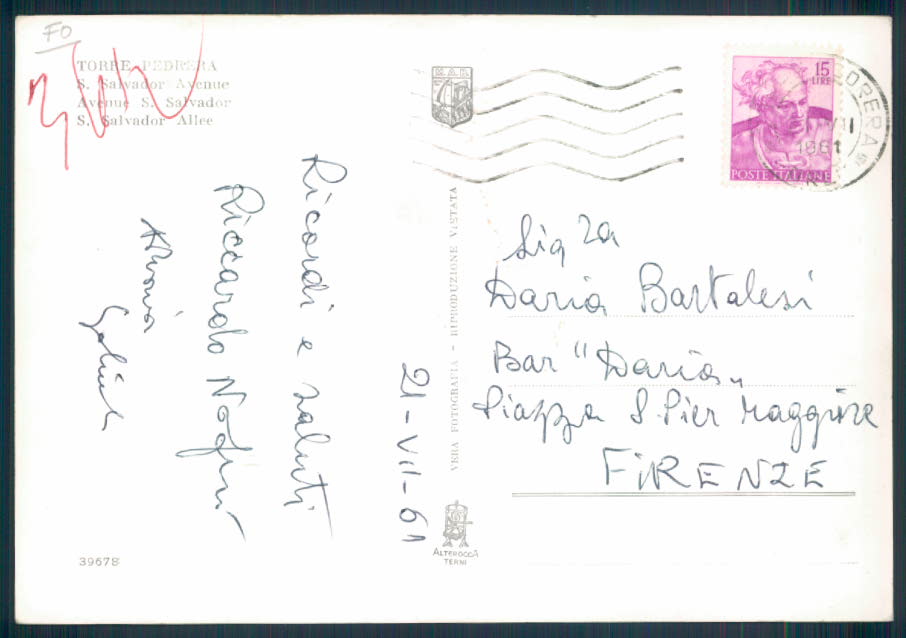 FO
TORRE PEDRERA
S. Salvador Avenue
Avenue S. Salvador
S. Salvador Allee
Ricordi e saluti
Riccardo
21-VII-61
39678
VERA FOTOGRAFIA - RIPRODUZIONE VIETATA
ALTEROCCA
TERNI
15
LIRE
POSTE ITALIANE
1961
Sig ra
Daria Bartalesi
Bar "Daria"
Piazza S. Pier Maggiore
FIRENZE